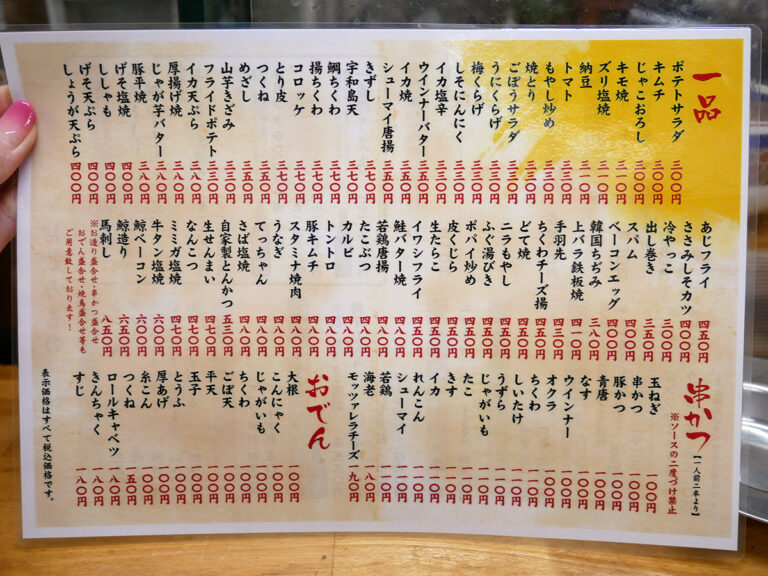 一品
ポテトサラダ 三〇〇円
キムチ 三〇〇円
じゃこおろし 三〇〇円
キモ焼 三一〇円
ズリ塩焼 三一〇円
納豆 二一〇円
トマト 三三〇円
もやし炒め 三三〇円
焼とり 三三〇円
ごぼうサラダ 三三〇円
うにくらげ 三三〇円
梅くらげ 三三〇円
しそにんにく 三三〇円
イカ塩辛 三三〇円
ウインナーバター 三五〇円
イカ焼 三五〇円
シューマイ唐揚 三五〇円
きずし 三五〇円
宇和島天 三七〇円
鯛ちくわ 三七〇円
揚ちくわ 三七〇円
コロッケ 三七〇円
とり皮 三七〇円
つくね 三五〇円
めざし 三五〇円
山芋きざみ 三三〇円
フライドポテト 三三〇円
イカ天ぷら 三五〇円
厚揚げ焼 三八〇円
じゃが芋バター 三八〇円
豚平焼 三八〇円
げそ塩焼 四〇〇円
ししゃも 四〇〇円
げそ天ぷら 四〇〇円
しょうが天ぷら 四〇〇円
あじフライ 四五〇円
ささみしそカツ 四〇〇円
冷やっこ 三〇〇円
出し巻き 三五〇円
スパム 四〇〇円
ベーコンエッグ 四〇〇円
韓国ちぢみ 三八〇円
上バラ鉄板焼 四一〇円
手羽先 四三〇円
ちくわチーズ揚 四五〇円
どて焼 四五〇円
ニラもやし 四五〇円
ふぐ湯びき 四五〇円
ポパイ炒め 四五〇円
皮くじら 四五〇円
生たらこ 四五〇円
イワシフライ 四五〇円
鮭バター焼 四八〇円
若鶏唐揚 四八〇円
たこぶつ 四八〇円
カルビ 四八〇円
トントロ 四八〇円
豚キムチ 四八〇円
スタミナ焼肉 四八〇円
うなぎ 四八〇円
てっちゃん 四八〇円
さば塩焼 四八〇円
自家製とんかつ 五三〇円
生せんまい 四七〇円
なんこつ 四七〇円
ミミガ塩焼 四七〇円
牛タン塩焼 六〇〇円
鯨ベーコン 六〇〇円
鯨造り 六五〇円
馬刺し 八五〇円
※お造り盛合せ・串かつ盛合せ
おでん盛合せ・焼鳥盛合せ等も
ご用意致しております!
串かつ
【一人前二本より】
※ソースの二度づけ禁止
玉ねぎ 一〇〇円
串かつ 一〇〇円
豚かつ 一〇〇円
青唐 一〇〇円
なす 一〇〇円
ウインナー 一〇〇円
オクラ 一〇〇円
ちくわ 一〇〇円
しいたけ 一〇〇円
うずら 一〇〇円
じゃがいも 一〇〇円
たこ 一〇〇円
きす 一〇〇円
イカ 一〇〇円
れんこん 一〇〇円
シューマイ 一〇〇円
若鶏 一〇〇円
海老 一八〇円
モッツァレラチーズ 一九〇円
おでん
大根 一〇〇円
こんにゃく 一〇〇円
じゃがいも 一〇〇円
ちくわ 一〇〇円
ごぼ天 一〇〇円
平天 一〇〇円
玉子 一〇〇円
とうふ 一〇〇円
厚あげ 一〇〇円
糸こん 一〇〇円
つくね 一五〇円
ロールキャベツ 一八〇円
きんちゃく 一八〇円
すじ 一八〇円
表示価格はすべて税込価格です。